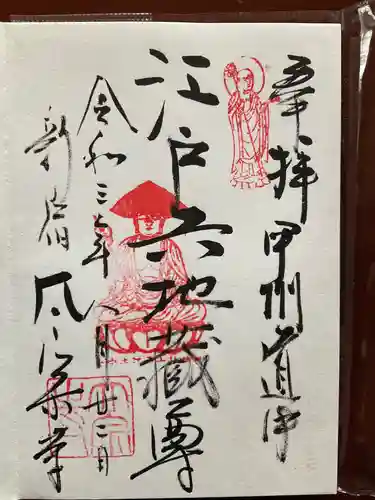 奉拝 甲州道中
江戸六地蔵尊
令和三年八月廿二日
新宿